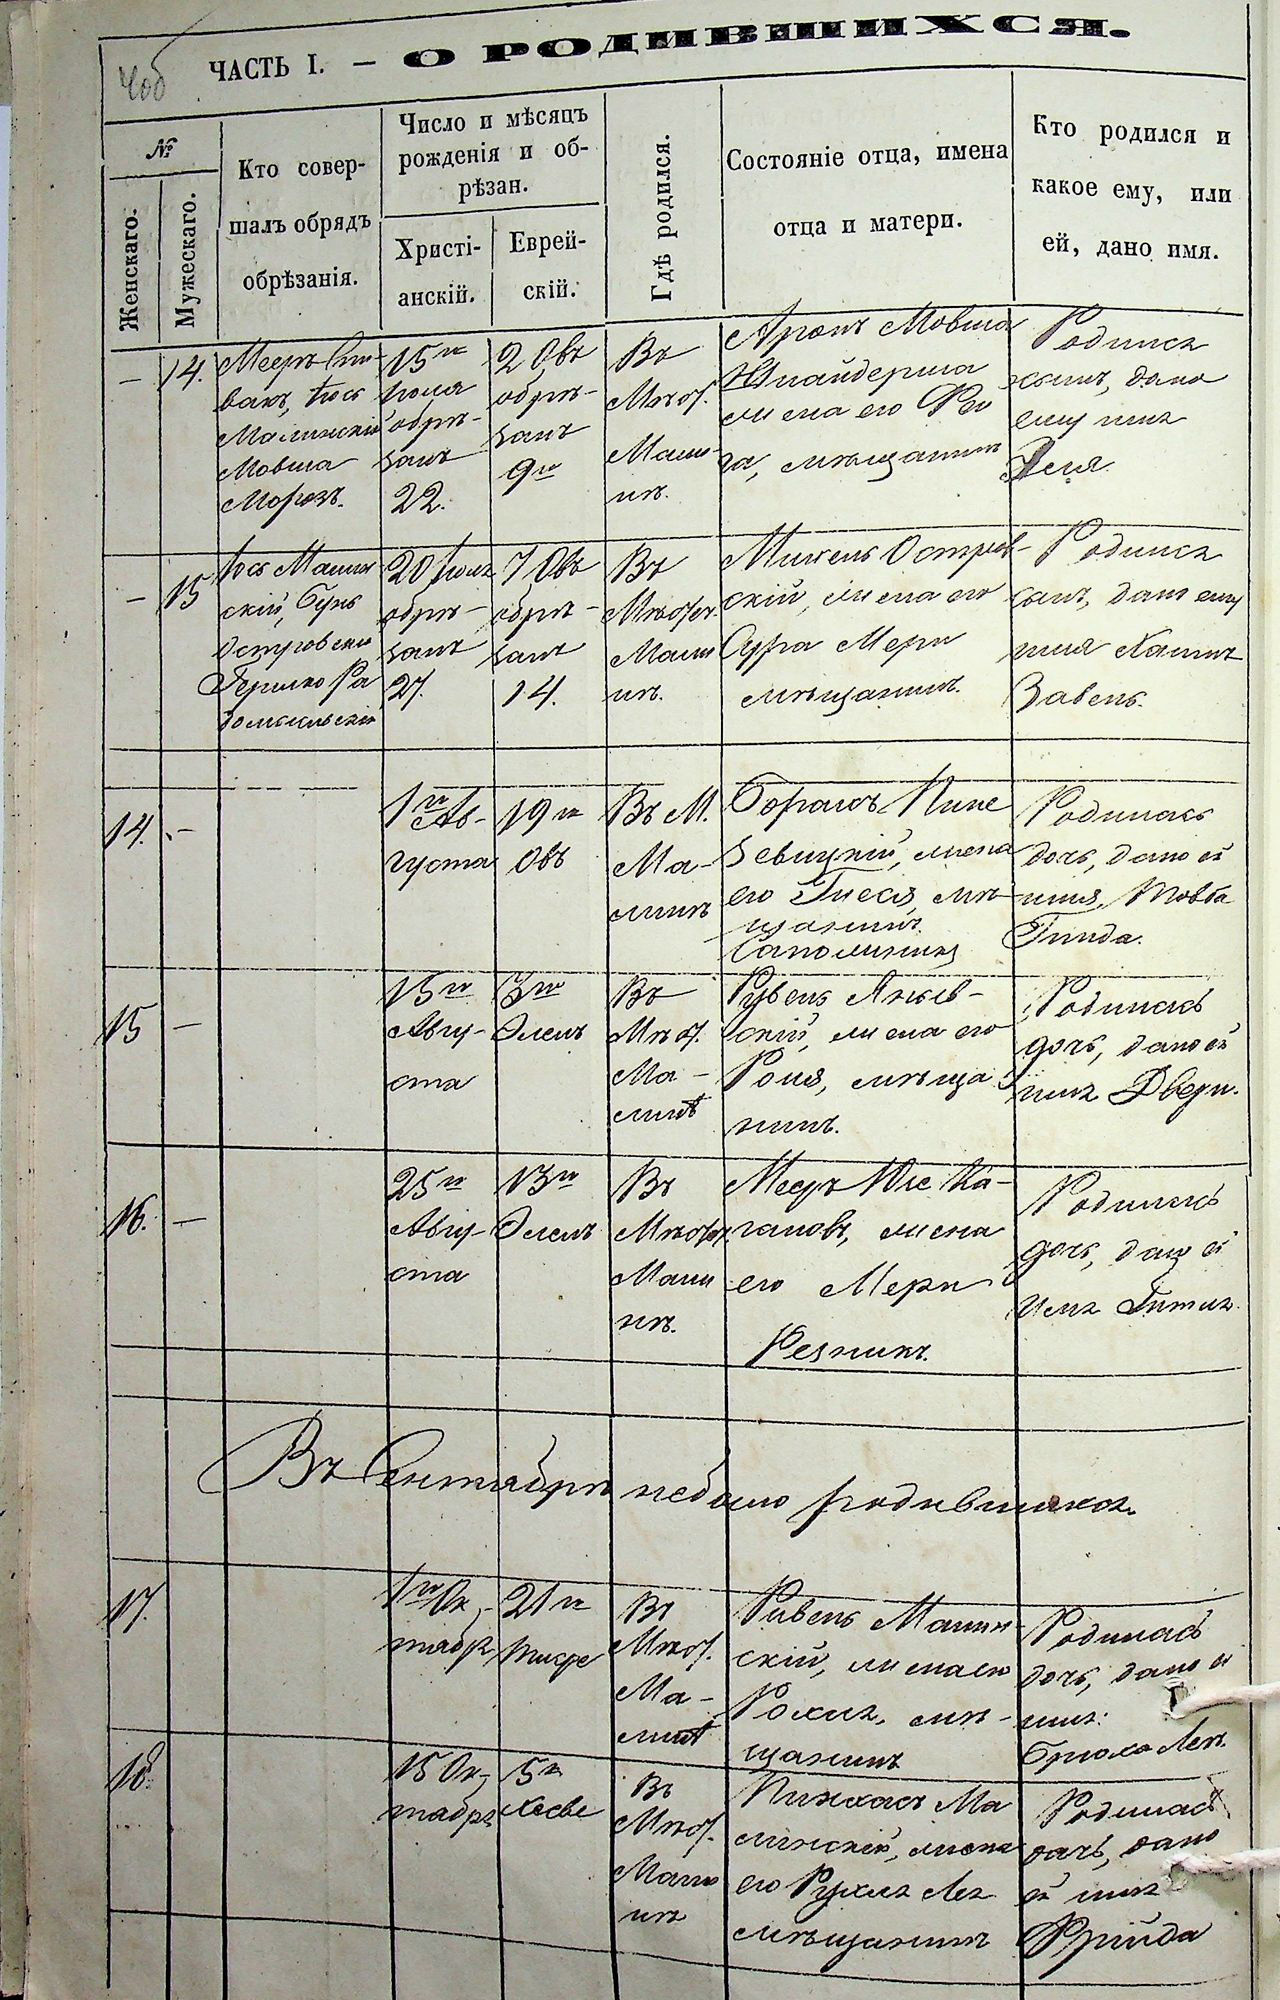 ЧАСТЬ I. — О РОДИВШИХСЯ.
№
Женскаго.
Мужескаго.
Кто совер-
шалъ обрядъ
обрѣзанія.
Число и мѣсяцъ
рожденія и об-
рѣзан.
Христі-
анскій.
Еврей-
скій.
Гдѣ родился.
Состояніе отца, имена
отца и матери.
Кто родился и
какое ему, или
ей, дано имя.
— 14.
Мееръ Спи-
вакъ, Іось
Малинскій
Мовша
Морозъ.
15го
Іюля
обрѣ-
занъ
22.
2 Овъ
обрѣ-
занъ
9го
Въ
Мѣст.
Мали-
нѣ.
Аронъ Мовша
Шнайдерша
жена его Фей
га, мѣщанинъ
Родился
сынъ, дано
ему имя
— 15
Іось Малин
скій,
Островскій
Гершко Ра
домысльскій
20 Іюля
обрѣ-
занъ
27.
7 Овъ
обрѣ-
занъ
14.
Въ
Мѣстеч.
Мали
нѣ.
Михель Остров-
скій, жена его
Сура Мери
мѣщанинъ.
Родился
сынъ, дано ему
имя Хаимъ
Завель.
14. —
1го Ав-
густа
19го
Овъ
Въ М.
Ма-
линѣ
Борохъ Пине
зевицкій, жена
его Гнеся, мѣ-
щанинъ
Родилась
дочь, дано ей
имя, Товба
Гинда.
15 —
15го
Авгу-
ста
3го
Элелъ
Въ
Мѣст.
Ма-
линѣ
Рувель Янкев-
скій, жена его
Роня, мѣща
нинъ.
Родилась
дочь, дано ей
имя Двери.
16. —
25го
Авгу-
ста
13го
Элелъ
Въ
Мѣстеч.
Мали
нѣ.
Мееръ Юс Ка-
гановъ, жена
его Мери
Резникъ.
Родилась
дочь, дано ей
имя Гитля.
Въ Сентябрѣ небыло родившихся.
17.
1го Ок-
тября
21го
Тишре
Въ
Мѣст.
Ма-
линѣ
Рувель Малин-
скій, жена его
Рохля, мѣ-
щанинъ
Родилась
дочь, дано ей
имя:
Брюха Лея.
18.
15 Ок-
тября
5го
Хесве
Въ
Мѣст.
Мали
нѣ
Пинхасъ Ма
линскій, жена
его Рухля Лея
мѣщанинъ
Родилась
дочь, дано
ей имя
Фрейда